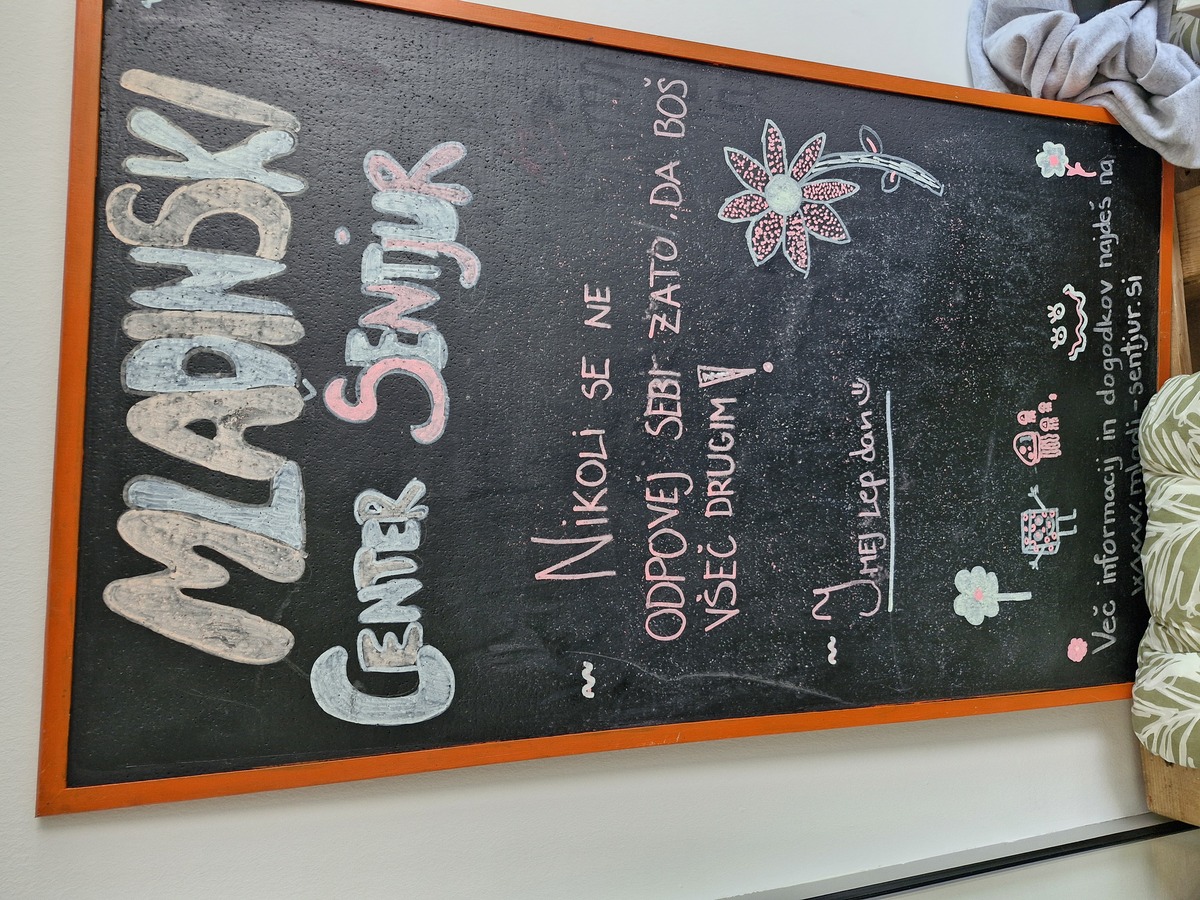 MLADINSKI
CENTER ŠENTJUR
~ NIKOLI SE NE
ODPOVEJ SEBI ZATO, DA BOŠ
VŠEČ DRUGIM!
~ IMEJ LEP DAN☺
Več informacij in dogodkov najdeš na
www.mladi-sentjur.si